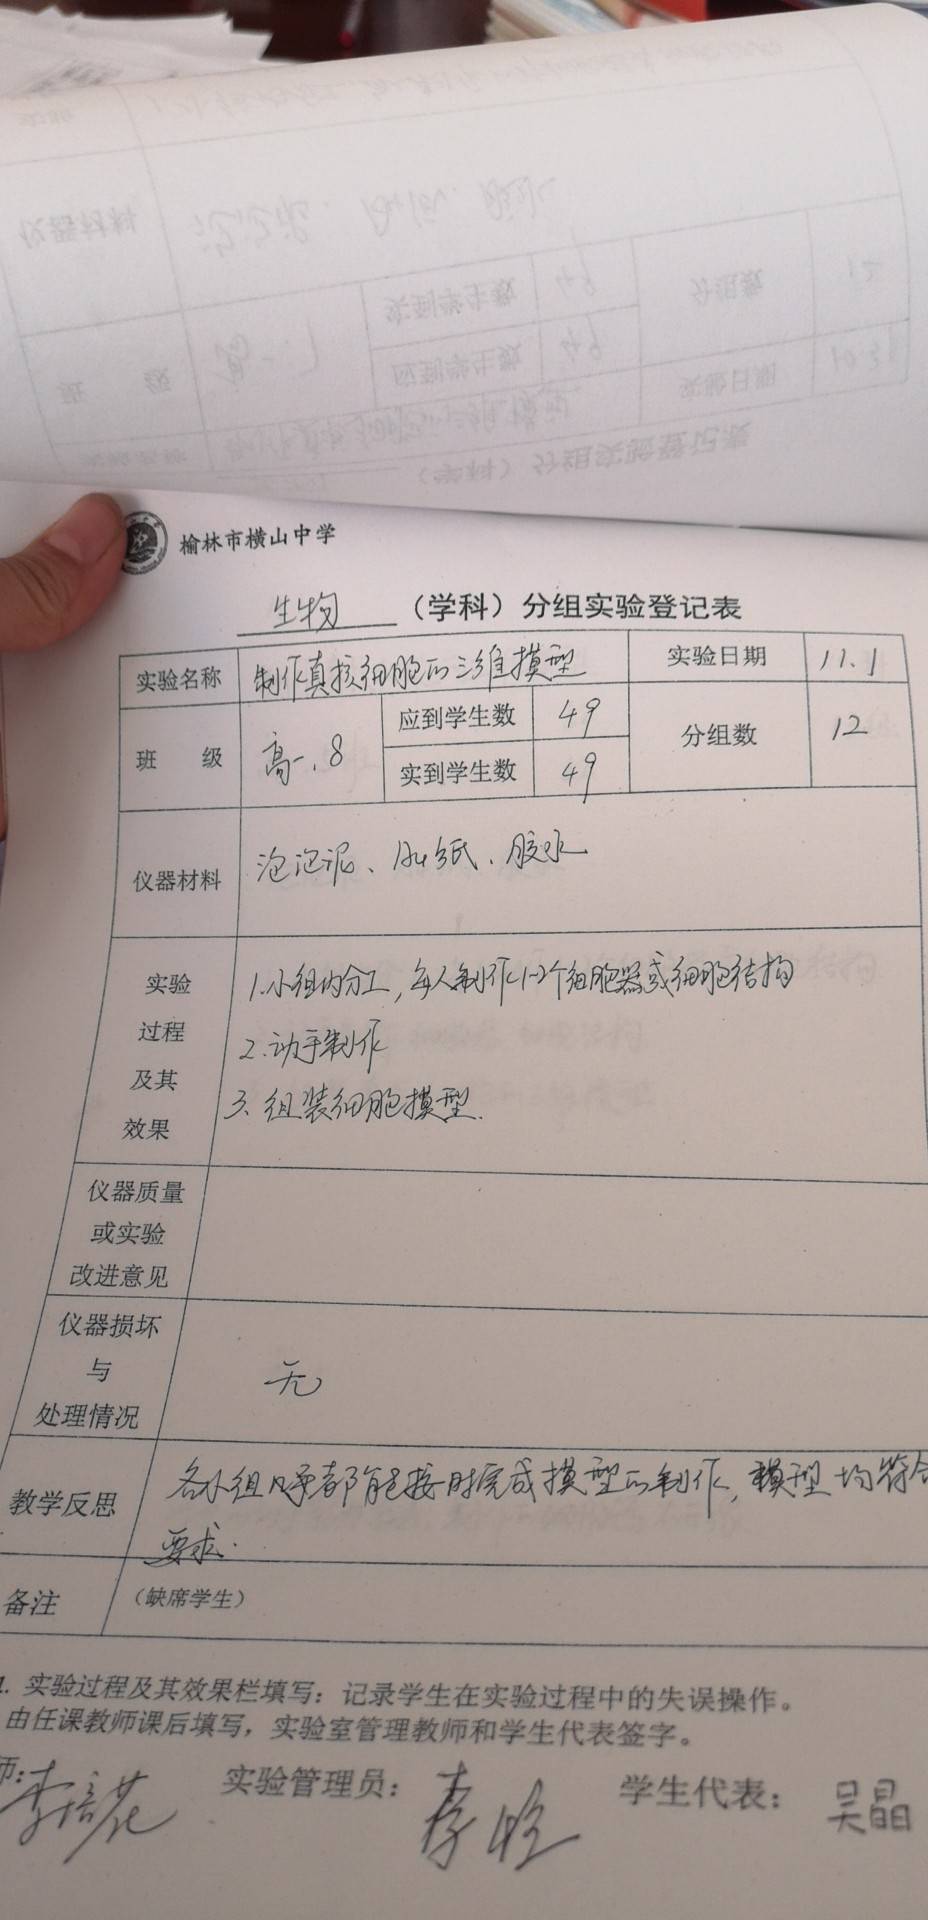 榆林市横山中学
生物 （学科）分组实验登记表
实验名称 制作真核细胞的三维模型 实验日期 11.1
班 级 高一.8 应到学生数 49 分组数 12
实到学生数 49
仪器材料 泡泡泥、A4纸、胶水
实验
过程
及其
效果
1.小组内分工,每人制作1-2个细胞器或细胞结构
2.动手制作
3.组装细胞模型.
仪器质量
或实验
改进意见
仪器损坏
与
处理情况
无
教学反思 各小组
都能按时完成模型的制作,模型均符合
要求.
备注 （缺席学生）
1. 实验过程及其效果栏填写：记录学生在实验过程中的失误操作。
由任课教师课后填写，实验室管理教师和学生代表签字。
师: 实验管理员: 学生代表: 吴晶